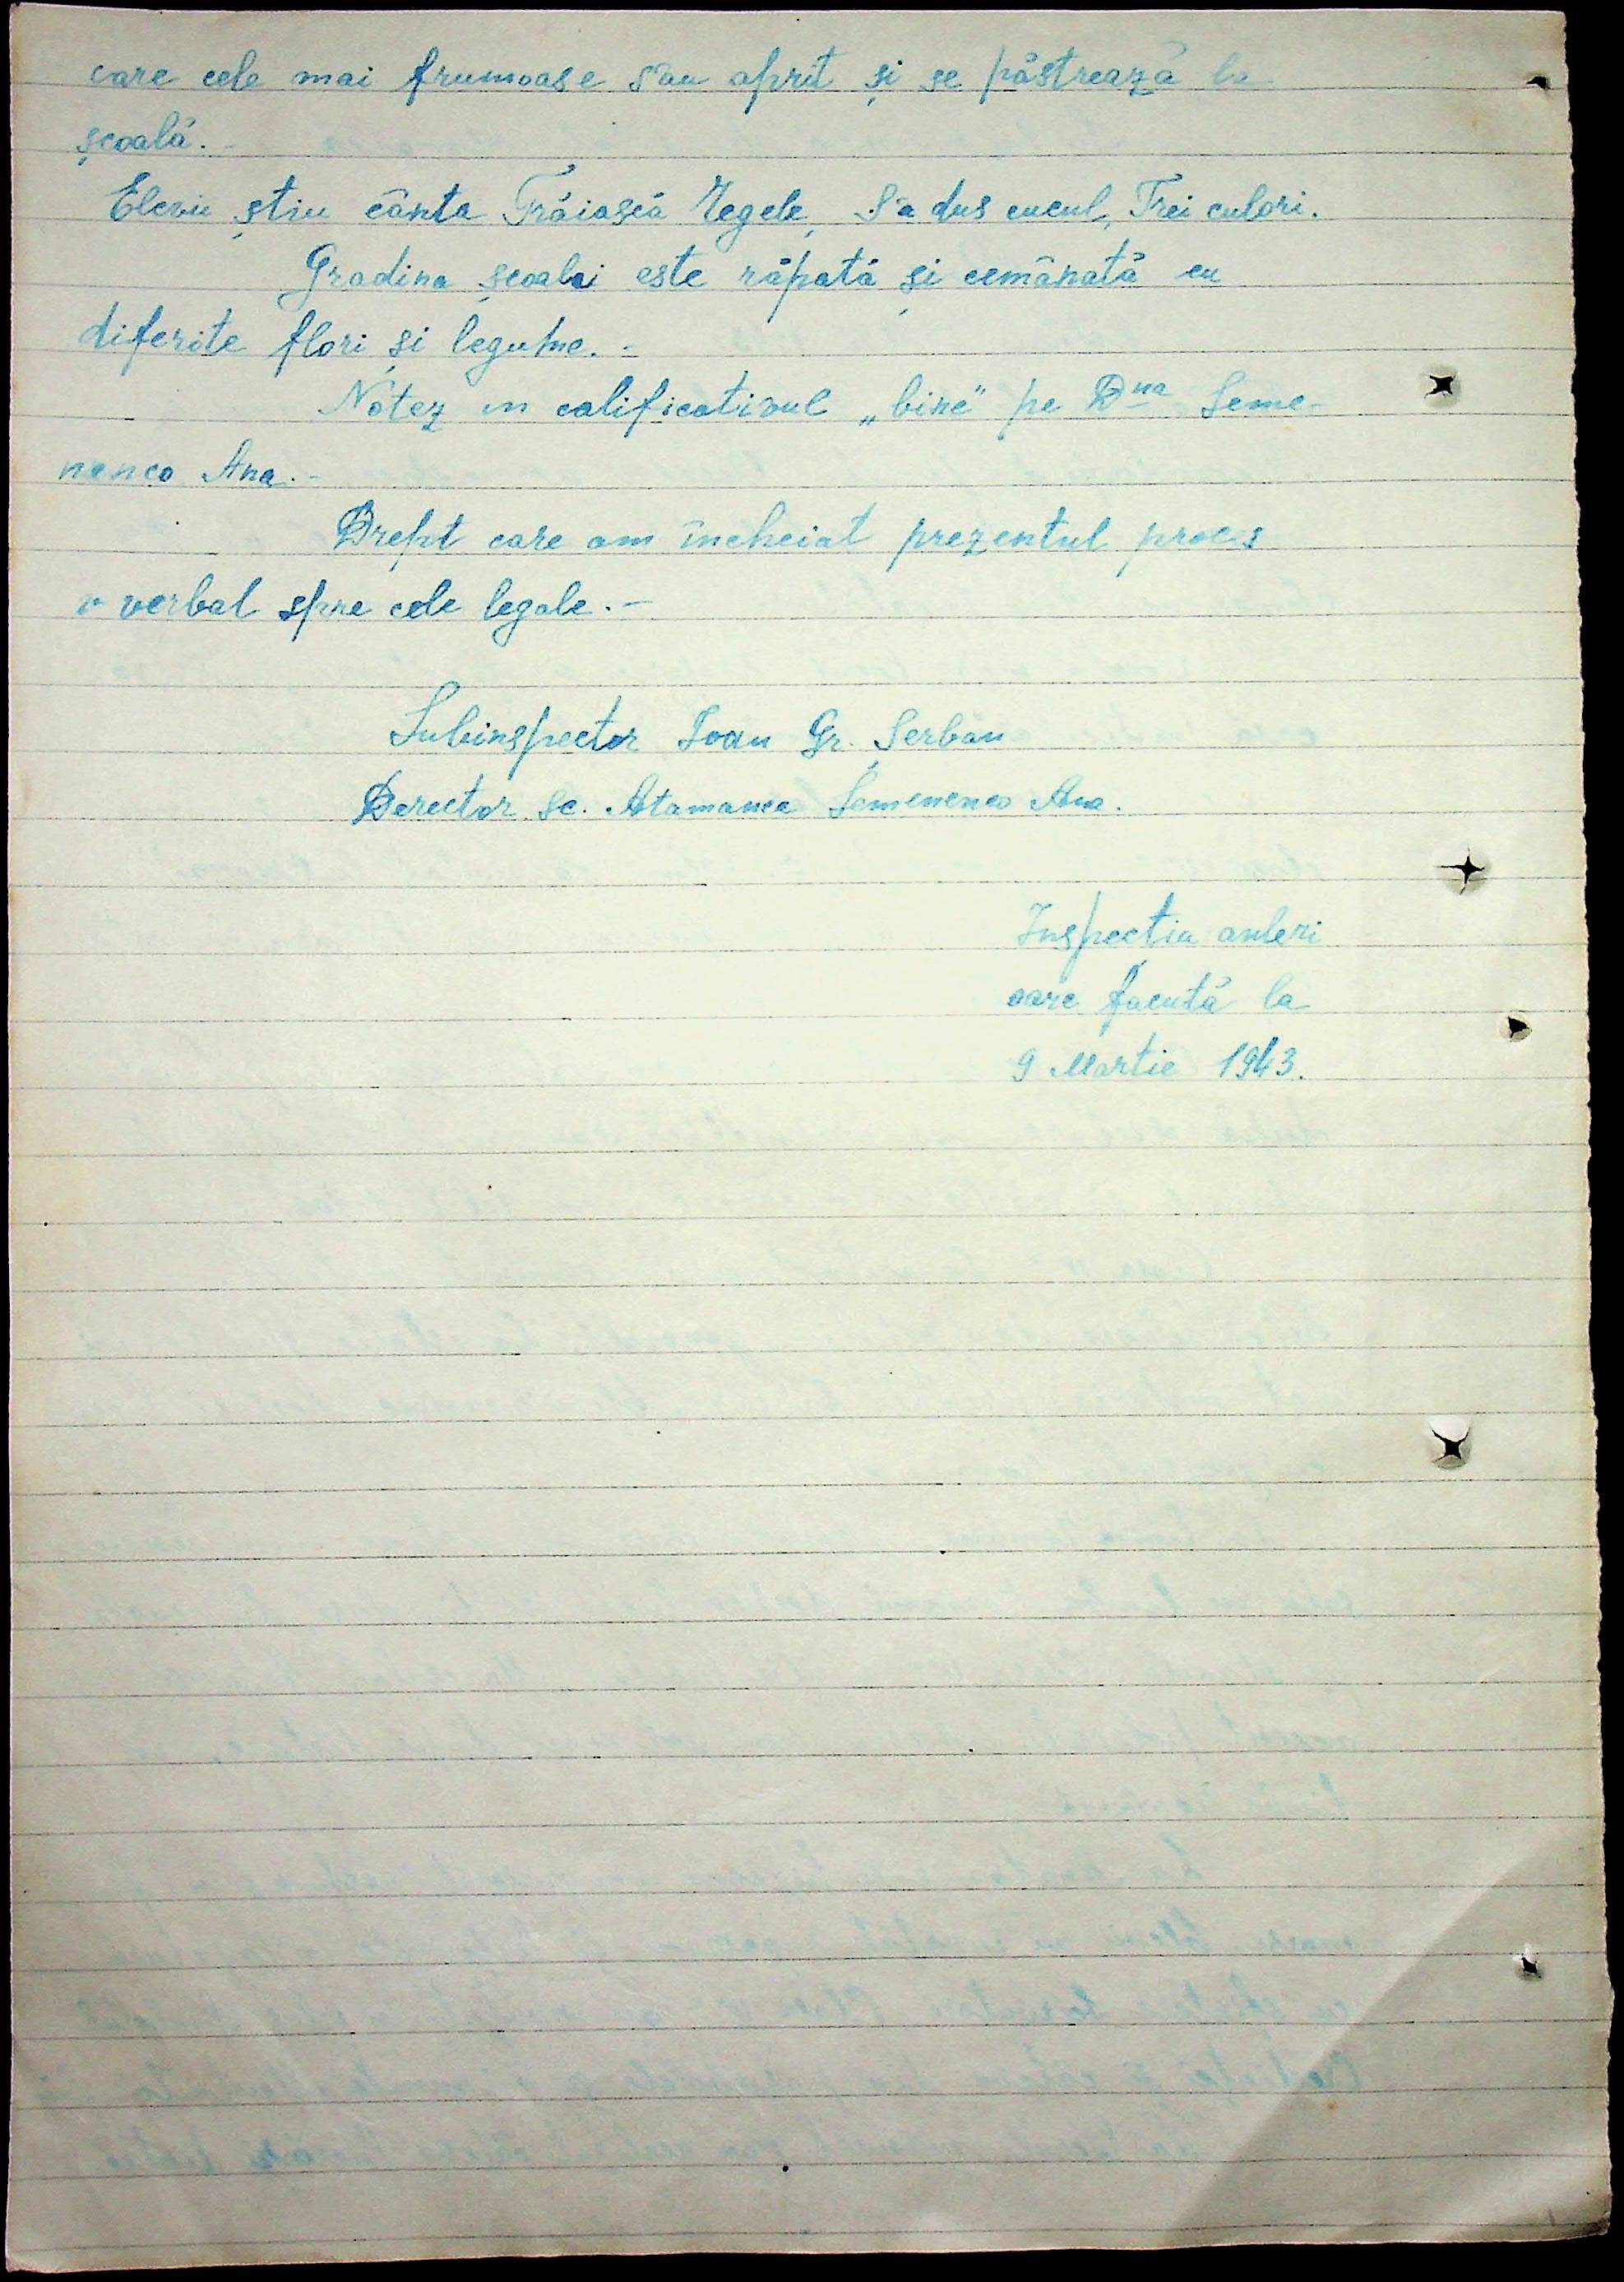 care cele mai frumoase s'au oprit și se păstrează la
școală.-
Elevii știu cânta Trăiască Regele, S'a dus cucul, Trei culori.
Gradina școalei este răpată și cemănată cu
diferite flori și legume.-
Notez cu calificativul „bine" pe Dna Seme-
nenco Ana.-
Drept care am încheiat prezentul proces
v verbal spre cele legale.-
Subinspector Ioan Gr. Șerban
Derector Șc. Atamanca Semenenco Ana.
Inspecția anteri
oare facută la
9 Martie 1943.